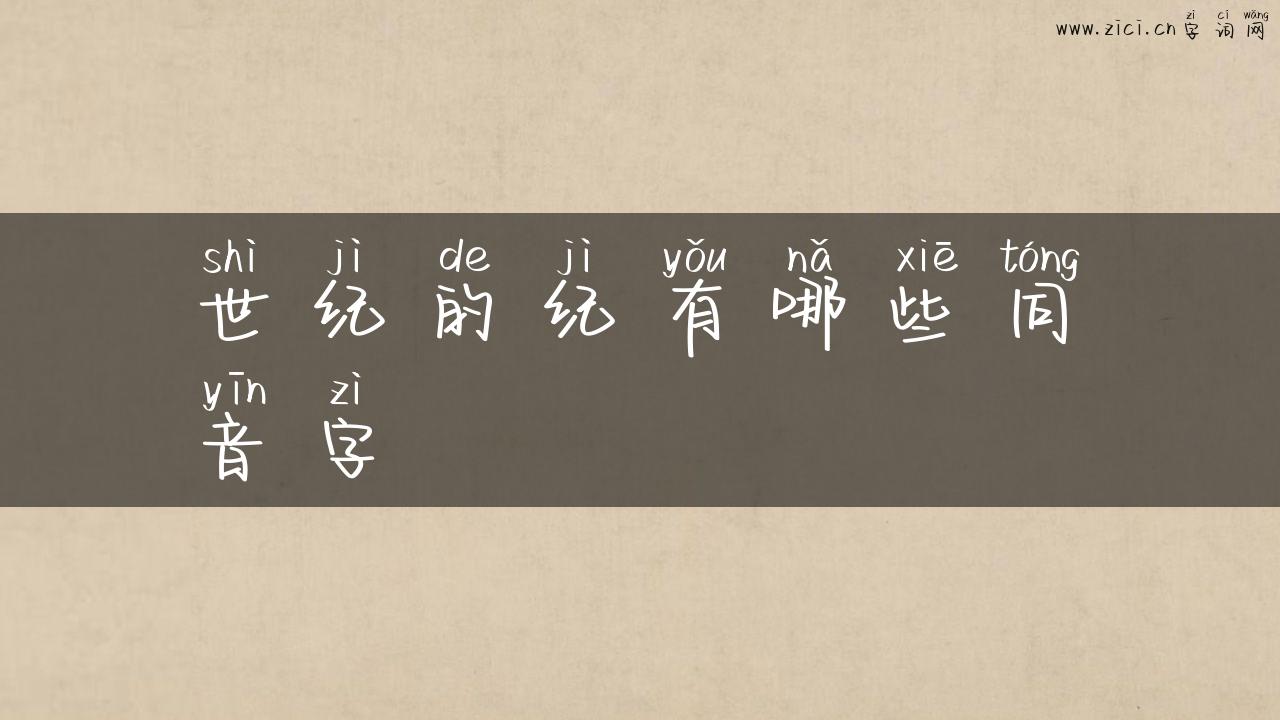 zì cí wǎng
www.zici.cn 字词网
shì jì de jì yǒu nǎ xiē tóng
世纪的纪有哪些同
yīn zì
音字